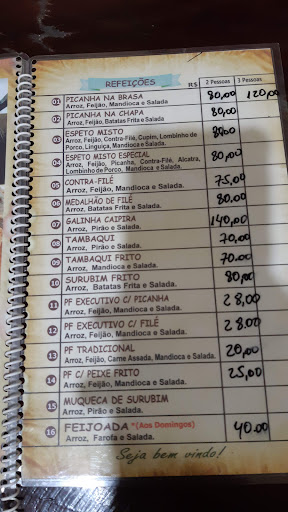 REFEIÇÕES R$ 2 Pessoas 3 Pessoas
01 PICANHA NA BRASA 80,00 120,00
Arroz, Feijão, Mandioca e Salada
02 PICANHA NA CHAPA 80,00
Arroz, Feijão, Batatas Frita e Salada
03 ESPETO MISTO 80,00
Arroz, Feijão, Contra-Filé, Cupim, Lombinho de
Porco, Linguiça, Mandioca e Salada.
04 ESPETO MISTO ESPECIAL 80,00
Arroz, Feijão, Picanha, Contra-Filé, Alcatra,
Lombinho de Porco, Mandioca e Salada.
05 CONTRA-FILÉ 75,00
Arroz, Feijão, Mandioca e Salada.
06 MEDALHÃO DE FILÉ 80.00
Arroz, Batatas Frita e Salada.
07 GALINHA CAIPIRA 140,00
Arroz, Pirão e Salada.
08 TAMBAQUI 70,00
Arroz, Pirão e Salada.
09 TAMBAQUI FRITO 70.00
Arroz, Mandioca e Salada.
10 SURUBIM FRITO 80,00
Arroz, Batatas Frita e Salada.
11 PF EXECUTIVO C/ PICANHA 28,00
Arroz, Feijão, Mandioca e Salada.
12 PF EXECUTIVO C/ FILÉ 28.00
Arroz, Feijão, Mandioca e Salada.
13 PF TRADICIONAL 20,00
Arroz, Feijão, Carne Assada, Mandioca e Salada.
14 PF C/ PEIXE FRITO 25,00
Arroz, Feijão, Mandioca e Salada.
15 MUQUECA DE SURUBIM
Arroz, Pirão e Salada.
16 FEIJOADA *(Aos Domingos) 40.00
Arroz, Farofa e Salada.
Seja bem vindo!